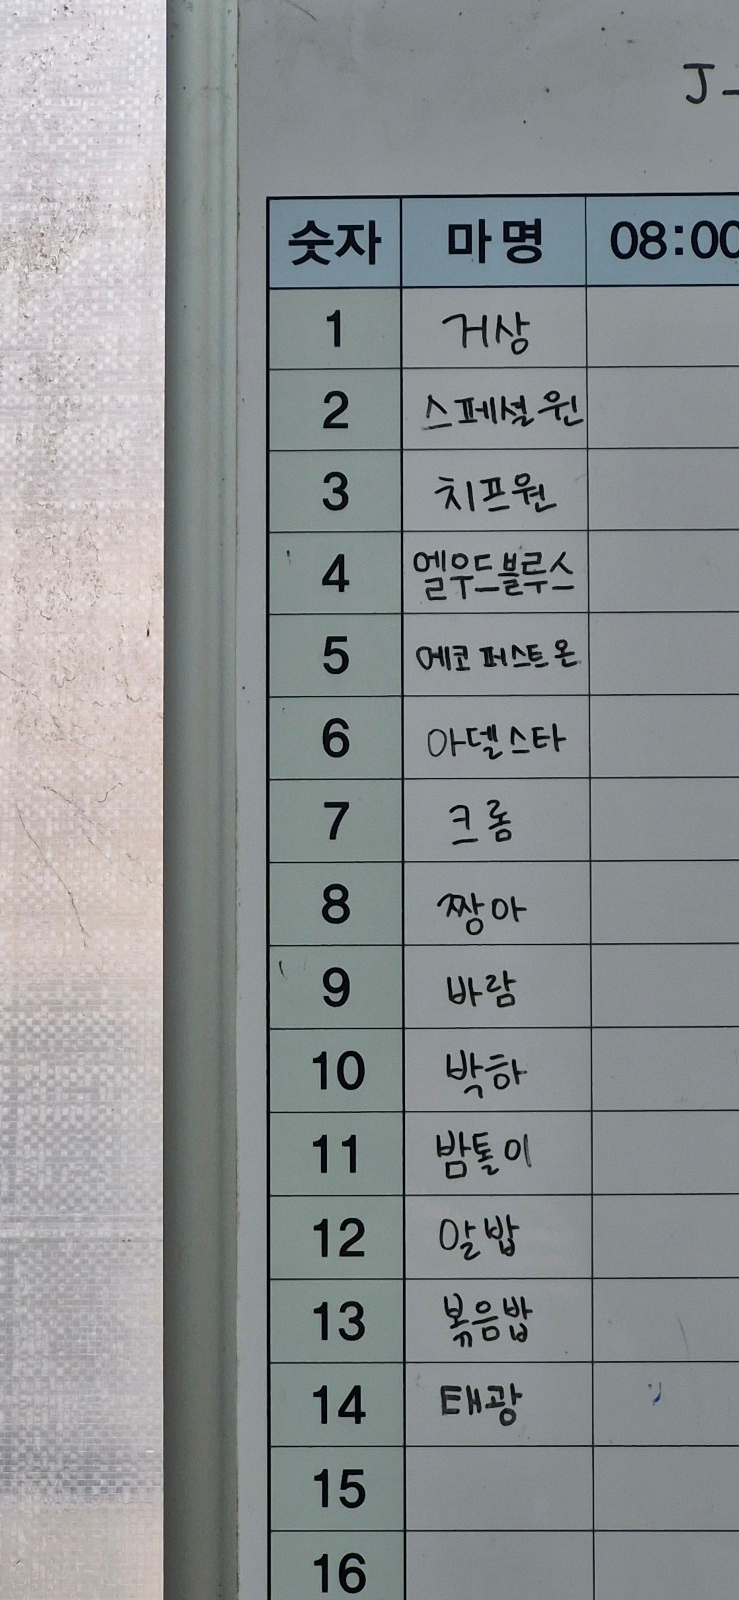 J-
숫자 마명 08:00
1 거상
2 스페셜원
3 치프원
4 엘우드블루스
5 에코 퍼스트 온
6 아델스타
7 크롬
8 짱아
9 바람
10 박하
11 밤톨이
12 알밥
13 볶음밥
14 태광
15
16